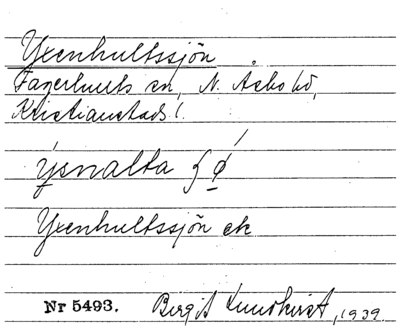 Yxenhultssjön
Fagerhults sn, N. Åsbo hd,
Kristianstads l.
ýsnalta
Yxenhultssjön ek
Nr 5493. Birgit Lundkvist, 1939